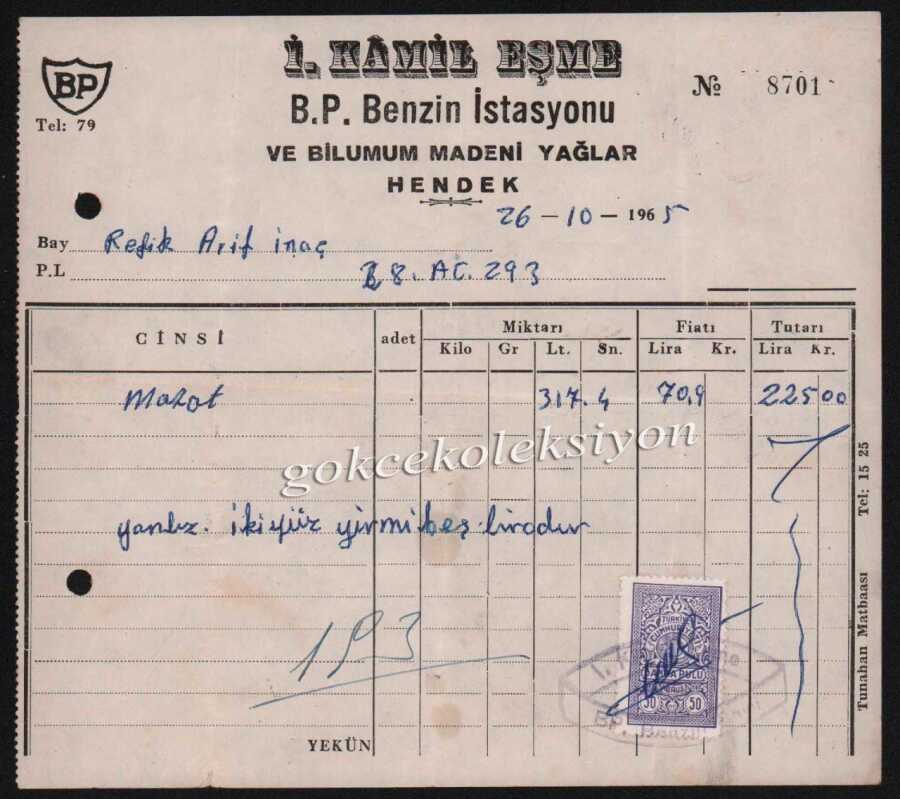 İ. KÂMİL EŞME
BP
B.P. Benzin İstasyonu
№ 8701
Tel: 79
VE BİLUMUM MADENİ YAĞLAR
HENDEK
26 - 10 - 1965
Bay Refik Arif inaç
P.L 8. AC. 293
CİNSİ adet Miktarı Fiatı Tutarı
Kilo Gr Lt. Sn. Lira Kr. Lira Kr.
Mazot 317.4 70,9 22500
gokcekoleksiyon
yanlız. ikiyüz yirmibeş liradır
193
TÜRKİYE
CUMHURİYETİ
PULU
50 50
BP.
YEKÜN
Tunahan Matbaası Tel: 15 25